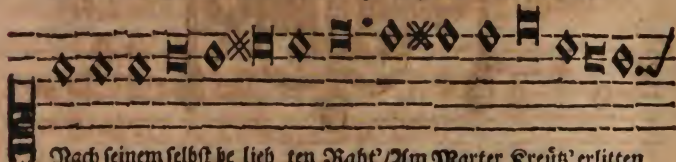 Nach seinem selbst be lieb ten Raht'/Am Marter Creütz' erlitten